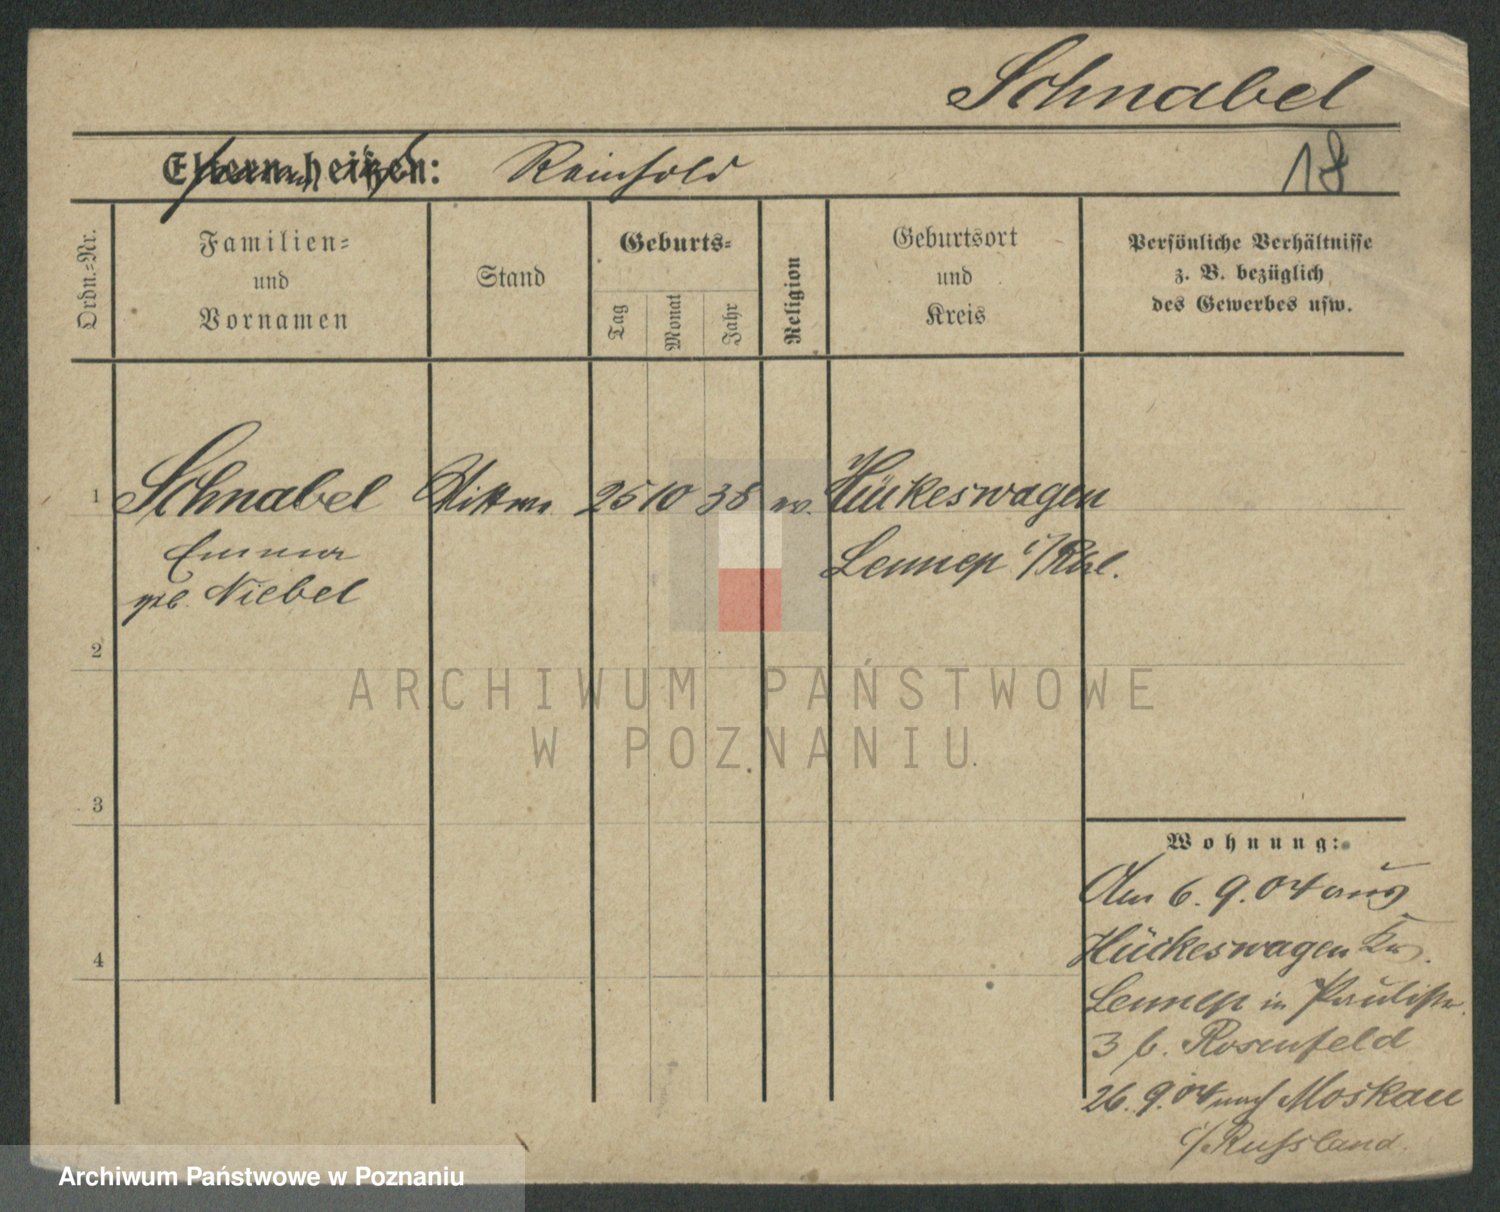 Schnabel
Eltern heißen: Reinhold
18
Ordn.-Nr.
Familien-
und
Vornamen
Stand
Geburts-
Tag
Monat
Jahr
Religion
Geburtsort
und
Kreis
Persönliche Verhältnisse
z. B. bezüglich
des Gewerbes usw.
1 Schnabel Wittwe 25 10 38 ev. Hückeswagen
Emma Lennep i/Rhl.
geb. Niebel
2
ARCHIWUM PAŃSTWOWE
W POZNANIU
3
Wohnung:
Am 6. 9. 04 aus
4
Hückeswagen Kr.
Lennep in Paulistr.
3 b. Rosenfeld
26. 9. 04 nach Moskau
i/Russland.
Archiwum Państwowe w Poznaniu